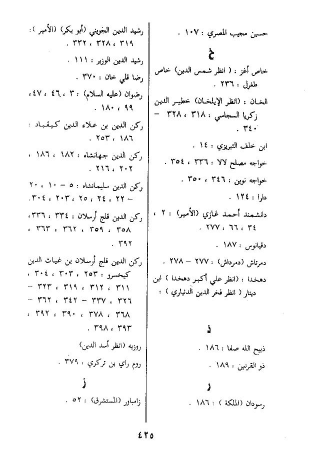 حسين مجيب المصري : ١٠٧ .
خ
خاص أغز : ( انظر شمس الدين ) خاص
طغرل : ٢٣٦ .
الخان : ( انظر الإيلخان ) خطير الدين
زكريا السجاسي : ٣١٨ ، ٣٢٨ –
٣٤٠ .
ابن خلف التبريزي : ١٤ .
خواجه مصلح لالا : ٣٣٦ ، ٣٥٤ .
خواجه نوين : ٣٤٦ ، ٣٥٠ .
دارا : ١٢٤ .
دانشمند أحمد غازي ( الأمير ) : ٢ ،
٣٤ ، ٦٦ ، ٢٧٧ .
دقيانوس : ١٨٧ .
دمرتاش ( دمرداش ) : ٢٧٧ – ٢٧٨ .
دهخدا : ( انظر علي أكبر دهخدا ) ابن
دينار ( انظر فخر الدين الدنياري ) :
ذ
ذبيح الله صفا : ١٨٦ .
ذو القرنين : ١٨٩ .
ر
رسودان ( الملكة ) : ١٨٦ .
رشيد الدين الجويني ( أبو بكر ) ( الأمير ) :
٣١٩ ، ٣٢٨ ، ٣٣٢ .
رشيد الدين الوزير : ١١١ .
رضا قلي خان : ٣٧٠ .
رضوان ( عليه السلام ) : ٣ ، ٤٦ ، ٤٧ ،
٩٩ ، ١٨٠ .
ركن الدين بن علاء الدين كيقباد :
١٨٦ ، ٢٥٣ .
ركن الدين جهانشاه : ١٨٢ ، ١٨٦ ،
٢٠٢ ، ٢١٦ .
ركن الدين سليمانشاه : ٥ – ١٠ ، ٢٠
– ٢٢ ، ٢٤ ، ٢٥ ، ٢٠٣ ، ٢٠٤ .
ركن الدين قلج أرسلان : ٣٣٤ ، ٣٣٦ ،
٣٥٨ ، ٣٥٩ ، ٣٦١ ، ٣٨٨ ،
٣٩٢ .
ركن الدين قلج أرسلان بن غياث الدين
كيخسرو : ٢٥٣ ، ٣٠٣ ، ٣٠٤ ،
٣١١ ، ٣١٢ ، ٣١٩ ، ٣٢٣ –
٣٤٢ – ٣٦٢ – ٣٦٧ ،
٣٦٨ ، ٣٧٨ ، ٣٩٢ ،
٣٩٣ ، ٣٩٨ .
روزبه ( انظر أسد الدين )
روم راي بن تركري : ٣٧٩ .
ز
زامباور ( المستشرق ) : ٥٢ .
٤٢٥